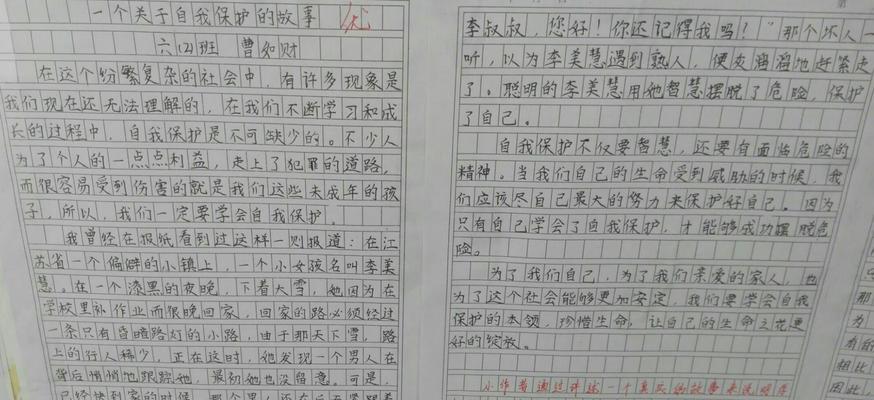 一个关于自我保护的故事 优
六(2)班 曹如财
在这个纷繁复杂的社会中，有许多现象是
我们现在还无法理解的，在我们不断学习和成
长的过程中，自我保护是不可缺少的。不少人
为了个人的一点点利益，走上了犯罪的道路，
而很容易受到伤害的就是我们这些未成年的孩
子，所以，我们一定要学会自我保护。
我曾经在报纸看到过这样一则报道：在江
苏省一个偏僻的小镇上，一个小女孩名叫李美
慧。在一个漆黑的夜晚，下着大雪，她因为在
学校里补作业而很晚回家，回家的路必须经过
一条只有昏暗路灯的小路，由于那天下雪，路
上的行人稀少，正在这时，她发现一个男人在
背后悄悄地跟踪她，最初她也没留意。可是，
已经快到家的时候，那个男人还在后面紧跟着
李叔叔，您好！你还记得我吗？”那个坏人一
听，以为李美慧遇到熟人，便灰溜溜地赶紧走
了。聪明的李美慧用她智慧摆脱了危险，保护
了自己。
自我保护不仅要智慧，还要有面临危险的
精神。当我们自己的生命受到威胁的时候，我
们应该尽自己最大的努力来保护好自己。因为
只有自己学会了自我保护，才能够成功摆脱危
险。
为了我们自己，为了我们亲爱的家人，也
为了这个社会能够更加安定，我们要学会自我
保护的本领，珍惜生命，让自己的生命之花更
好的绽放。
小作者通过讲述一个真实的故事来说明在
那
为
有的
相比
因此，